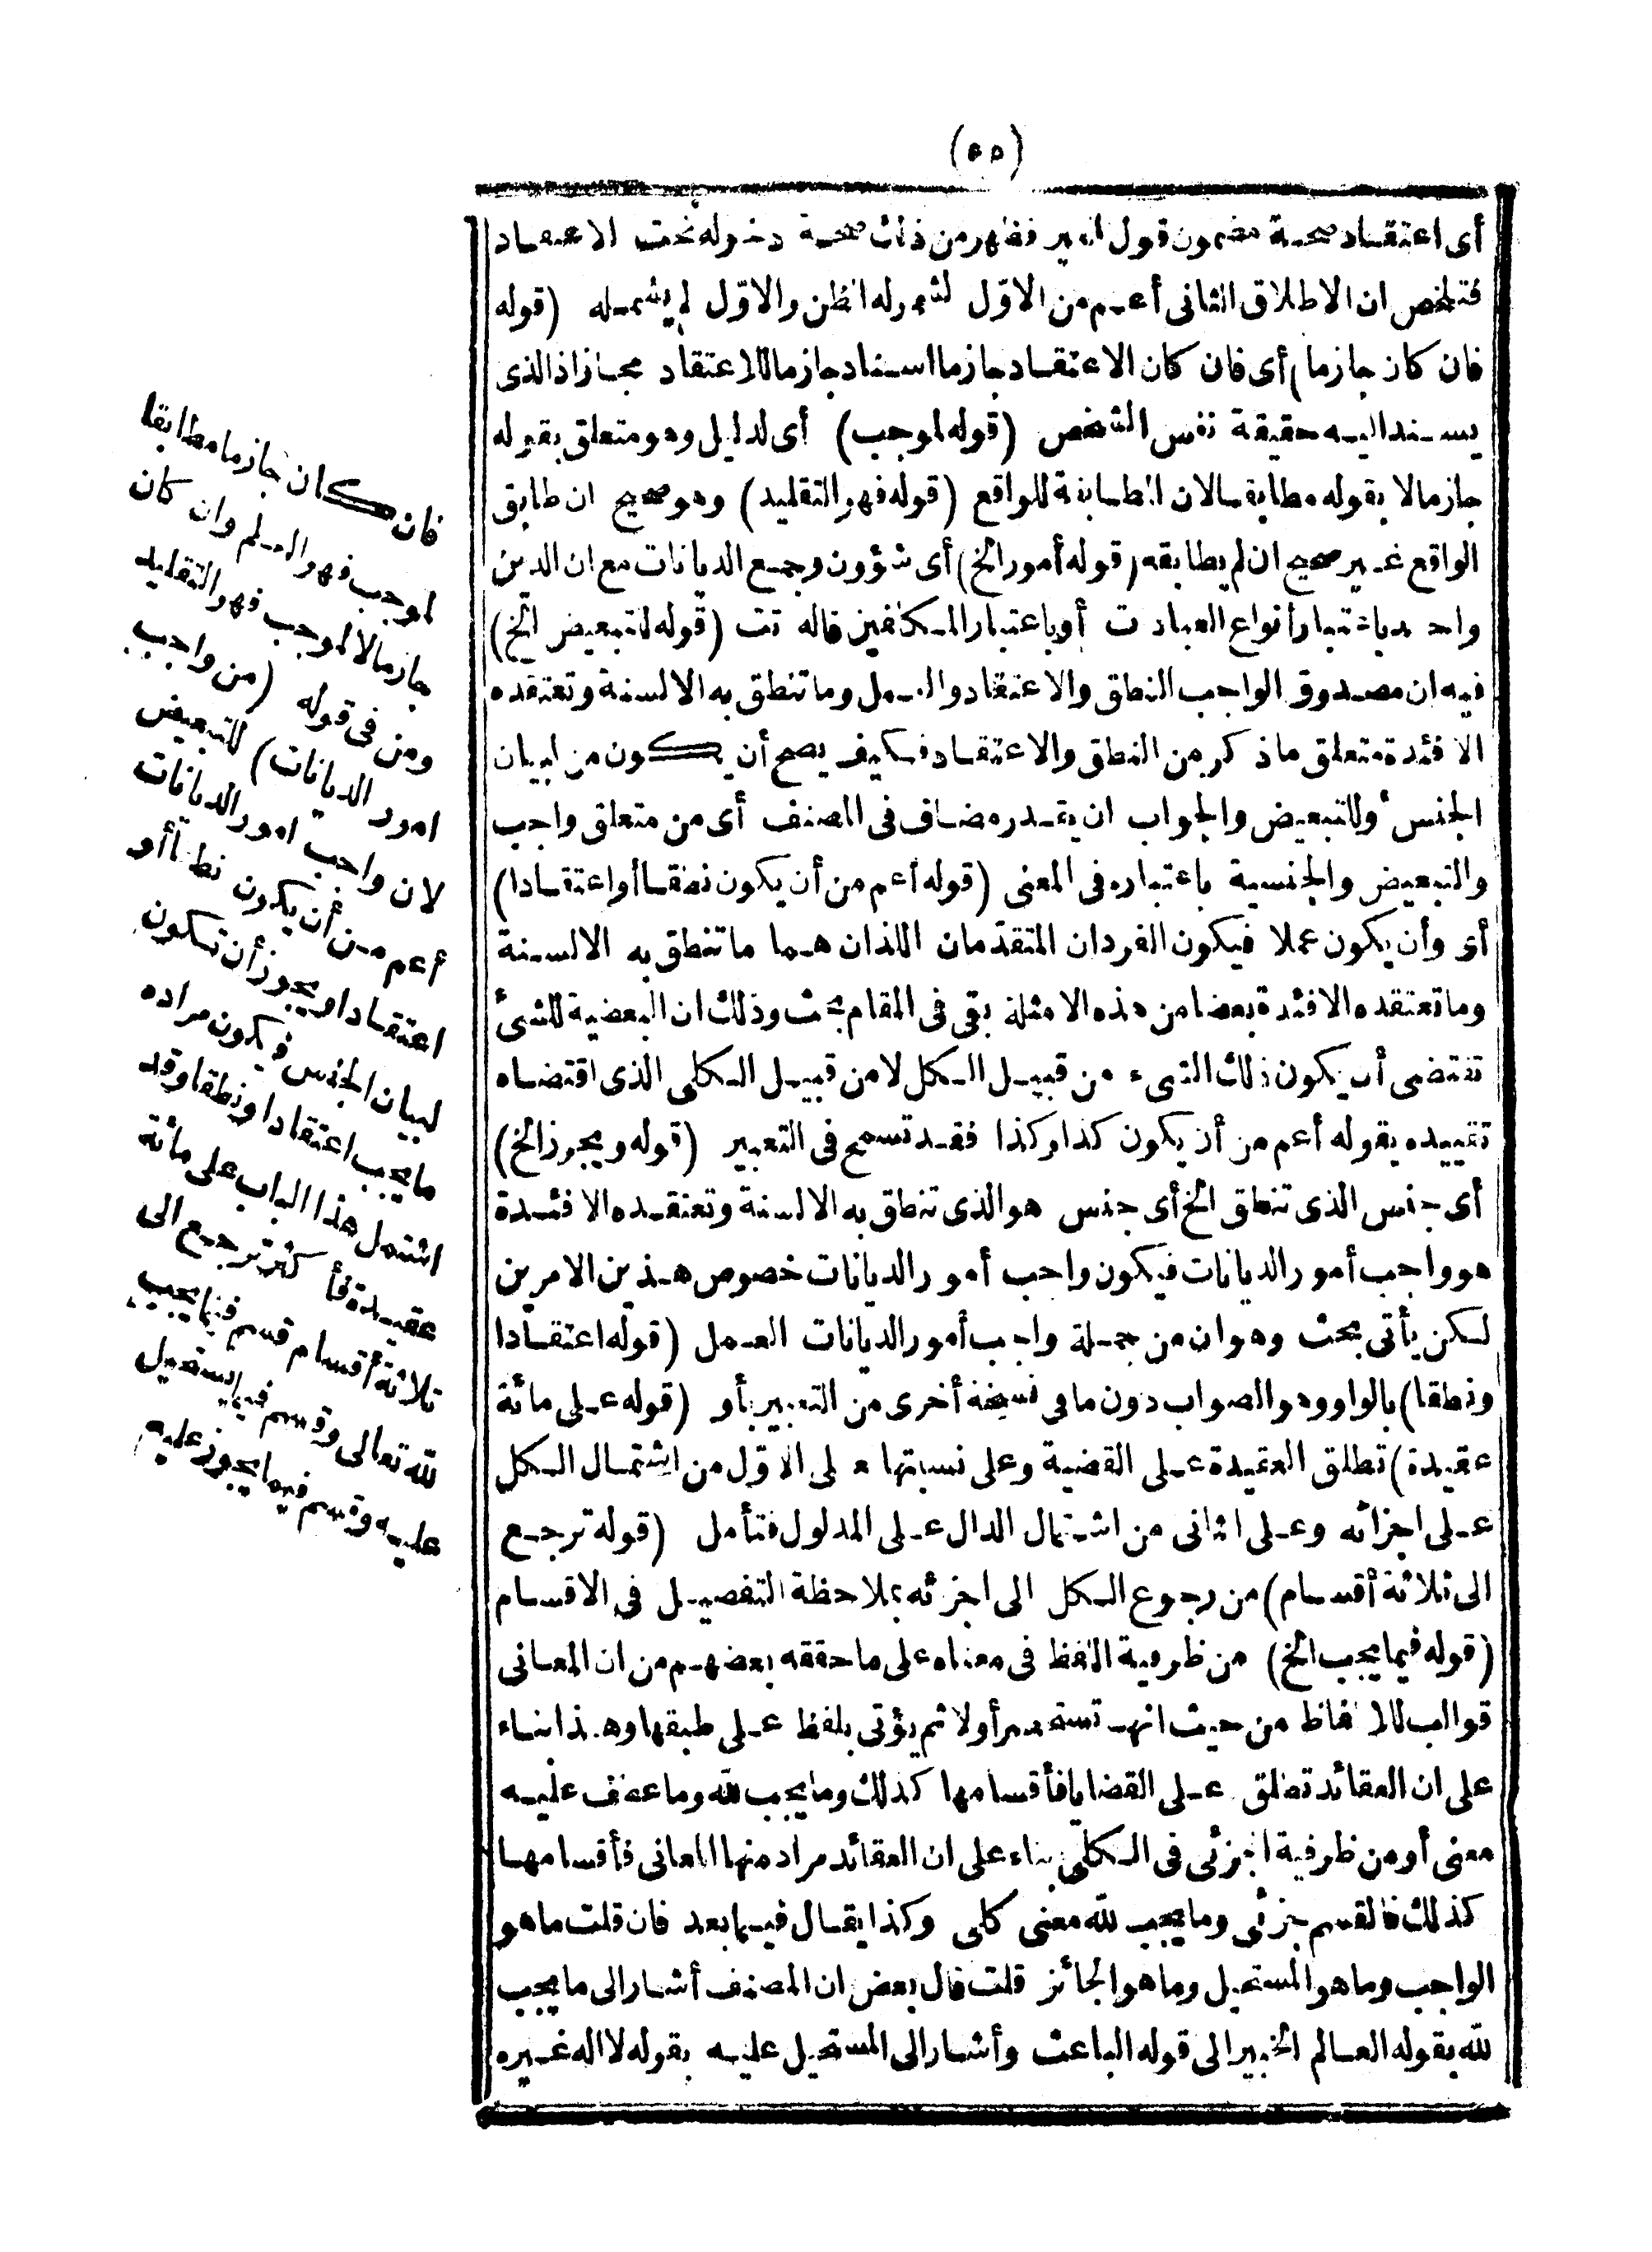 (٥٥)
أى اعتقاد صحة مضمون قول الغير فظهر من ذلك صحة دخوله تحت الاعتقاد
فتلخص ان الاطلاق الثانى أعم من الاوّل لشموله الظن والاوّل لم يشمله (قوله
فان كان جازما) أى فان كان الاعتقاد جازما اسناد جازما للاعتقاد مجاز اذ الذى
يسند اليه حقيقة نفس الشخص (قوله لموجب) أى لدليل وهو متعلق بقوله
جازما لا بقوله مطابقا لان المطابقة للواقع (قوله فهو التقليد) وهو صحيح ان طابق
الواقع غير صحيح ان لم يطابقه (قوله أمور الخ) أى شؤون وجمع الديانات مع ان الدين
واحد باعتبار أنواع العبادات أو باعتبار المكلفين قاله تت (قوله لتبعيض الخ)
فيه ان مصدوق الواجب النطق والاعتقاد والعمل وما تنطق به الالسنة وتعتقده
الافئدة متعلق ما ذكر من النطق والاعتقاد فكيف يصح أن يكون من لبيان
الجنس أو للتبعيض والجواب ان يقدر مضاف فى المصنف أى من متعلق واجب
والتبعيض والجنسية باعتباره فى المعنى (قوله أعم من أن يكون نطقا أو اعتقادا)
أى وأن يكون عملا فيكون الفردان المتقدّمان اللذان هما ما تنطق به الالسنة
وما تعتقده الافئدة بعضا من هذه الامثلة بقى فى المقام بحث وذلك ان البعضية للشئ
تقتضى أن يكون ذلك الشىء من قبيل الكل لا من قبيل الكلى الذى اقتضاه
تقييده بقوله أعم من أن يكون كذا وكذا فقد تسمح فى التعبير (قوله ويجوز الخ)
أى جنس الذى تنطق الخ أى جنس هو الذى تنطق به الالسنة وتعتقده الافئدة
هو واجب أمور الديانات فيكون واجب أمور الديانات خصوص هذين الامرين
لكن يأتى بحث وهو ان من جملة واجب أمور الديانات العمل (قوله اعتقادا
ونطقا) بالواو وهو الصواب دون ما فى نسخة أخرى من التعبير بأو (قوله على مائة
عقيدة) تطلق العقيدة على القضية وعلى نسبتها على الاوّل من اشتمال الكل
على اجزائه وعلى الثانى من اشتمال الدال على المدلول فتأمل (قوله ترجع
الى ثلاثة أقسام) من رجوع الكل الى اجزئه بملاحظة التفصيل فى الاقسام
(قوله فيما يجب الخ) من ظرفية اللفظ فى معناه على ما حققه بعضهم من ان المعانى
قوالب للالفاظ من حيث انها تستحضر أولا ثم يؤتى بلفظ على طبقها وهذا بناء
على ان العقائد تطلق على القضايا فأقسامها كذلك وما يجب لله وما عطف عليه
معنى أو من ظرفية الجزئى فى الكلى بناء على ان العقائد مراد منها المعانى فأقسامها
كذلك فالقسم جزئى وما يجب لله معنى كلى وكذا يقال فيما بعد فان قلت ما هو
الواجب وما هو المستحيل وما هو الجائز قلت قال بعض ان المصنف أشار الى ما يجب
لله بقوله العالم الخبير الى قوله الباعث وأشار الى المستحيل عليه بقوله لا اله غيره
فان كان جازما مطابقا
لموجب فهو العلم وان كان
جازما لا لموجب فهو التقليد
ومن فى قوله (من واجب
امور الديانات) للتبعيض
لان واجب امور الديانات
أعم من أن يكون نطقا أو
اعتقادا ويجوز أن تكون
لبيان الجنس فيكون مراده
ما يجب اعتقادا ونطقا وقد
اشتمل هذا الباب على مائة
عقيدة فأكثر ترجع الى
ثلاثة أقسام قسم فيما يجب
لله تعالى وقسم فيما يستحيل
عليه وقسم فيما يجوز عليه